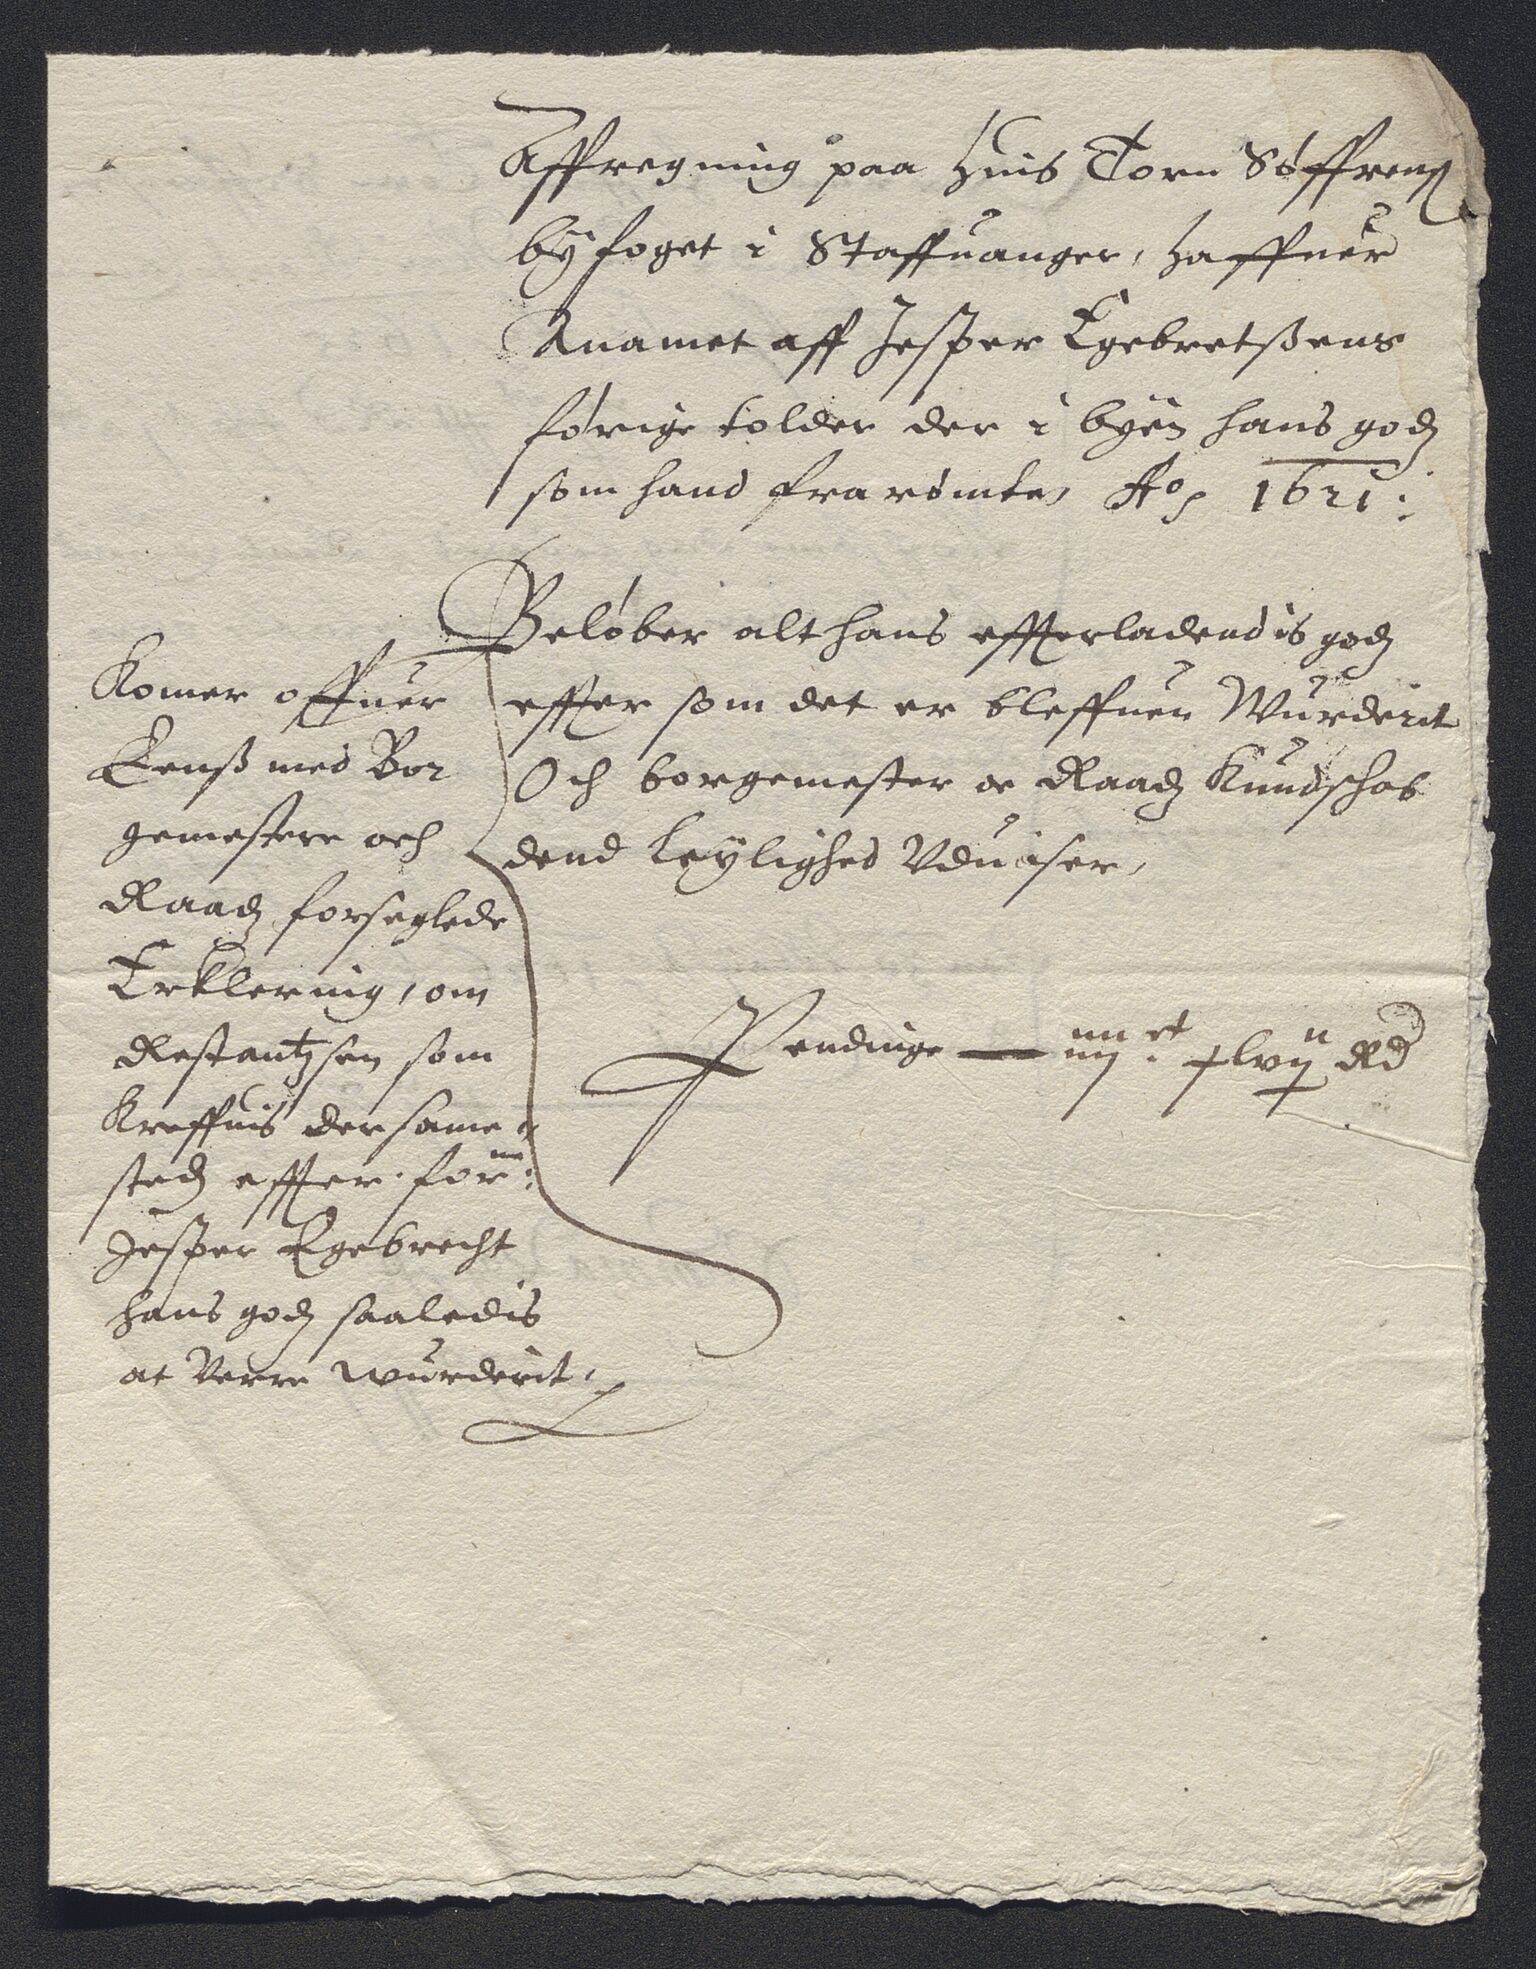 Affregning paa huis Torn Søffrensen
byfoget i Staffuanger, haffuer
Anamet aff Jesper Egebretßens
førige tolder der i byen hans godz
som hand fra rømte, Ao 1621:
Beløber alt hans effterladendis godz
effter som det er bleffuen Wurderit
Och borgemester oc Raadz Kundschab
dend Leylighed Vduiser,
Pendinge — iiij et Rd
Komer offuer
Eenß med Bor
gemestere och
Raadz forseglede
Erklering, om
Restantzsen som
Kreffuis der same
stedz effter for ne:
Jesper Egebrecht
hans godz saaledis
at Verre wurderit,